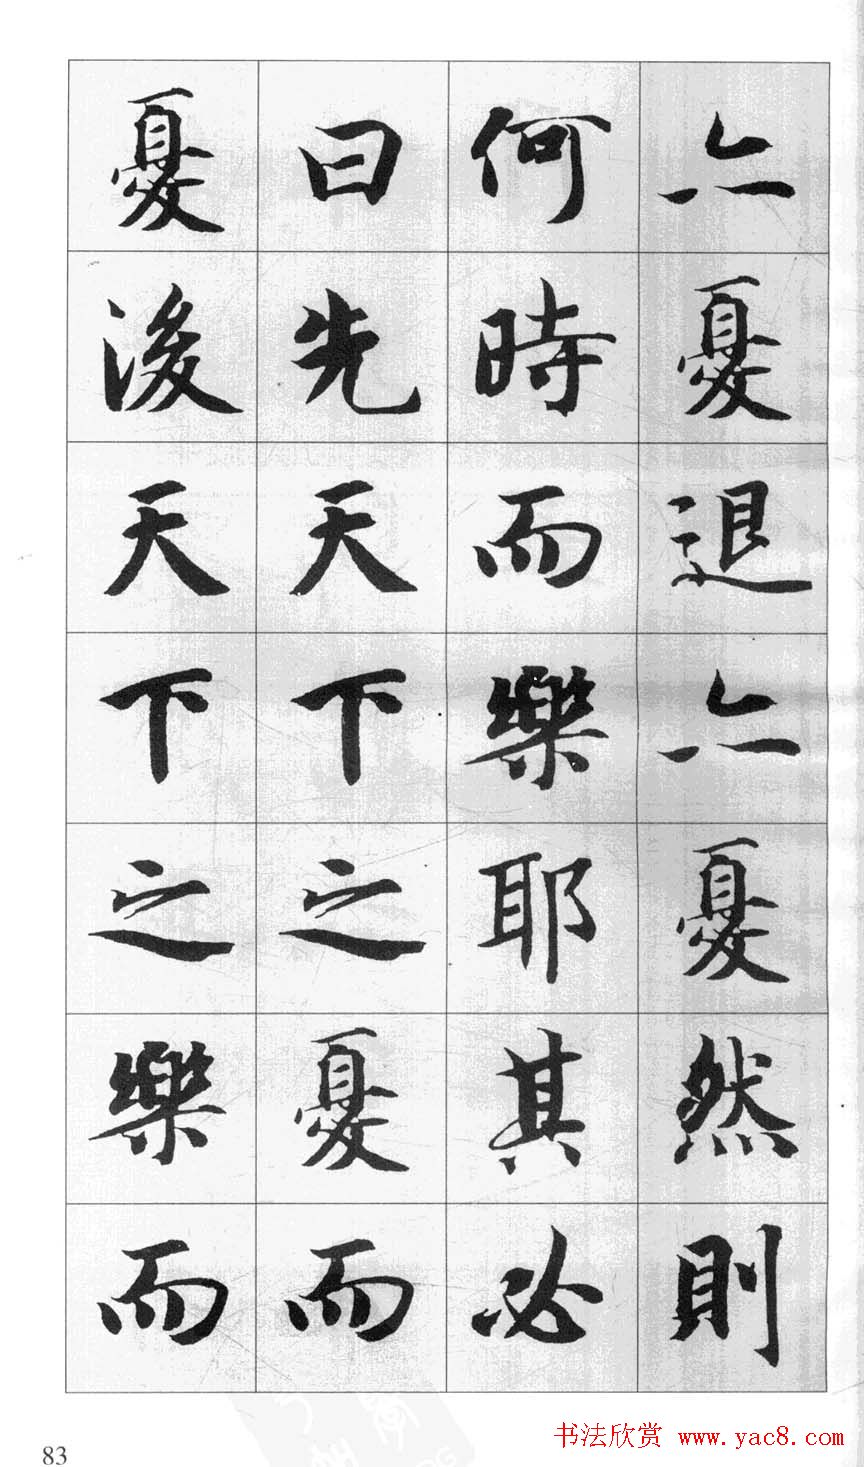 亦憂退亦憂然則
何時而樂耶其必
曰先天下之憂而
憂後天下之樂而
83
书法欣赏 www.yac8.com